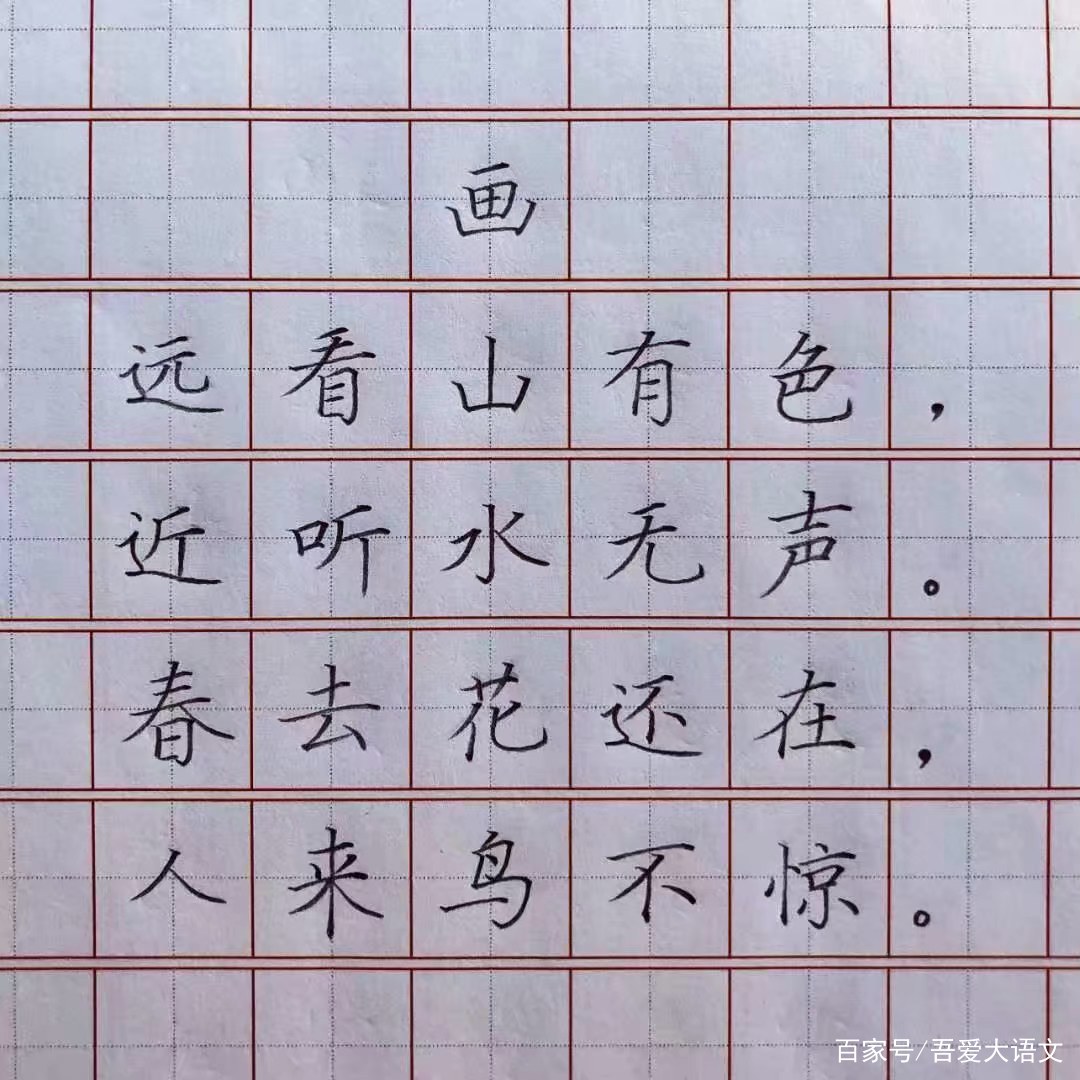 画
远看山有色，
近听水无声。
春去花还在，
人来鸟不惊。
百家号/吾爱大语文